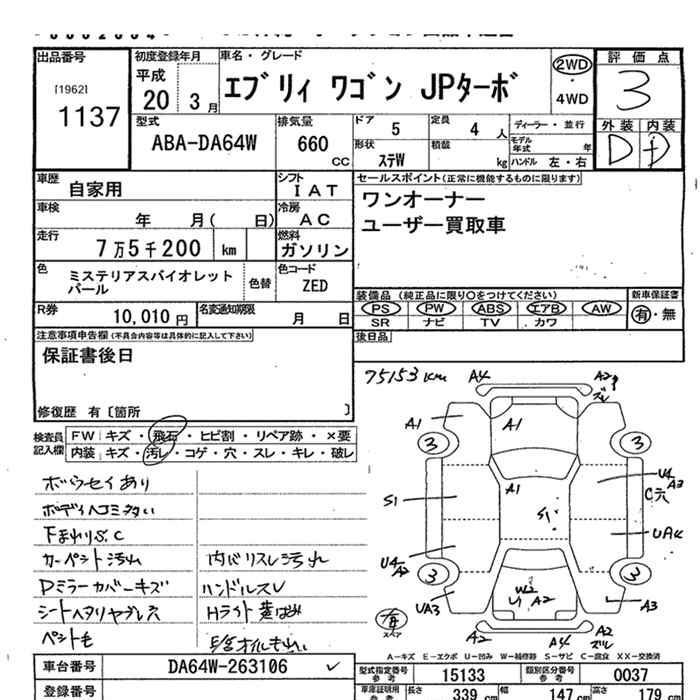 出品番号
[1962]
1137
初度登録年月
平成
20 3 月
車名・グレード
エブリィ ワゴン JPターボ
2WD
・
4WD
評価点
3
外装 内装
D D
型式
ABA-DA64W
排気量
660 CC
ドア 5
定員 4 人
ディーラー・並行
形状
ステW
積載 kg
モデル年式 年
ハンドル 左・右
車歴
自家用
シフト
IAT
車検
年 月( 日)
冷房
AC
走行
7万5千200 km
燃料
ガソリン
セールスポイント(正常に機能するものに限ります)
ワンオーナー
ユーザー買取車
色
ミステリアスバイオレット
パール
色替
色コード
ZED
R券
10,010円
名変通知期限
月 日
装備品 (純正品に限り○をつけてください)
PS PW ABS エアB AW
SR ナビ TV カワ
新車保証書
有・無
注意事項申告欄(不具合内容等は具体的に記入して下さい)
保証書後日
修復歴 有〔箇所 〕
後日品
検査員
記入欄
FW キズ・飛石・ヒビ割・リペア跡・×要
内装 キズ・汚レ・コゲ・穴・スレ・キレ・破レ
ボウセイあり
ボディヘコミ多い
F まわりS.C
カーペット汚れ
Dミラーカバーキズ
シートヘタリヤブレ穴
ペット毛
内バリスレ汚れ
ハンドルスレ
Hライト黄ばみ
75153km
A4
A2
A1
A1
3
3
U4
A3
C穴
A1
S1
S1
UA4
U4
A2
3
3
W2
U1 A2
UA3
A3
スペア
A2
A4
A2
A-キズ E-エクボ U-凹み W-補修跡 S-サビ C-腐食 XX-交換済
車台番号
DA64W-263106
登録番号
型式指定番号
参考
15133
類別区分番号
参考
0037
車庫証明用
長さ 339 cm
幅 147 cm
高さ 179 cm